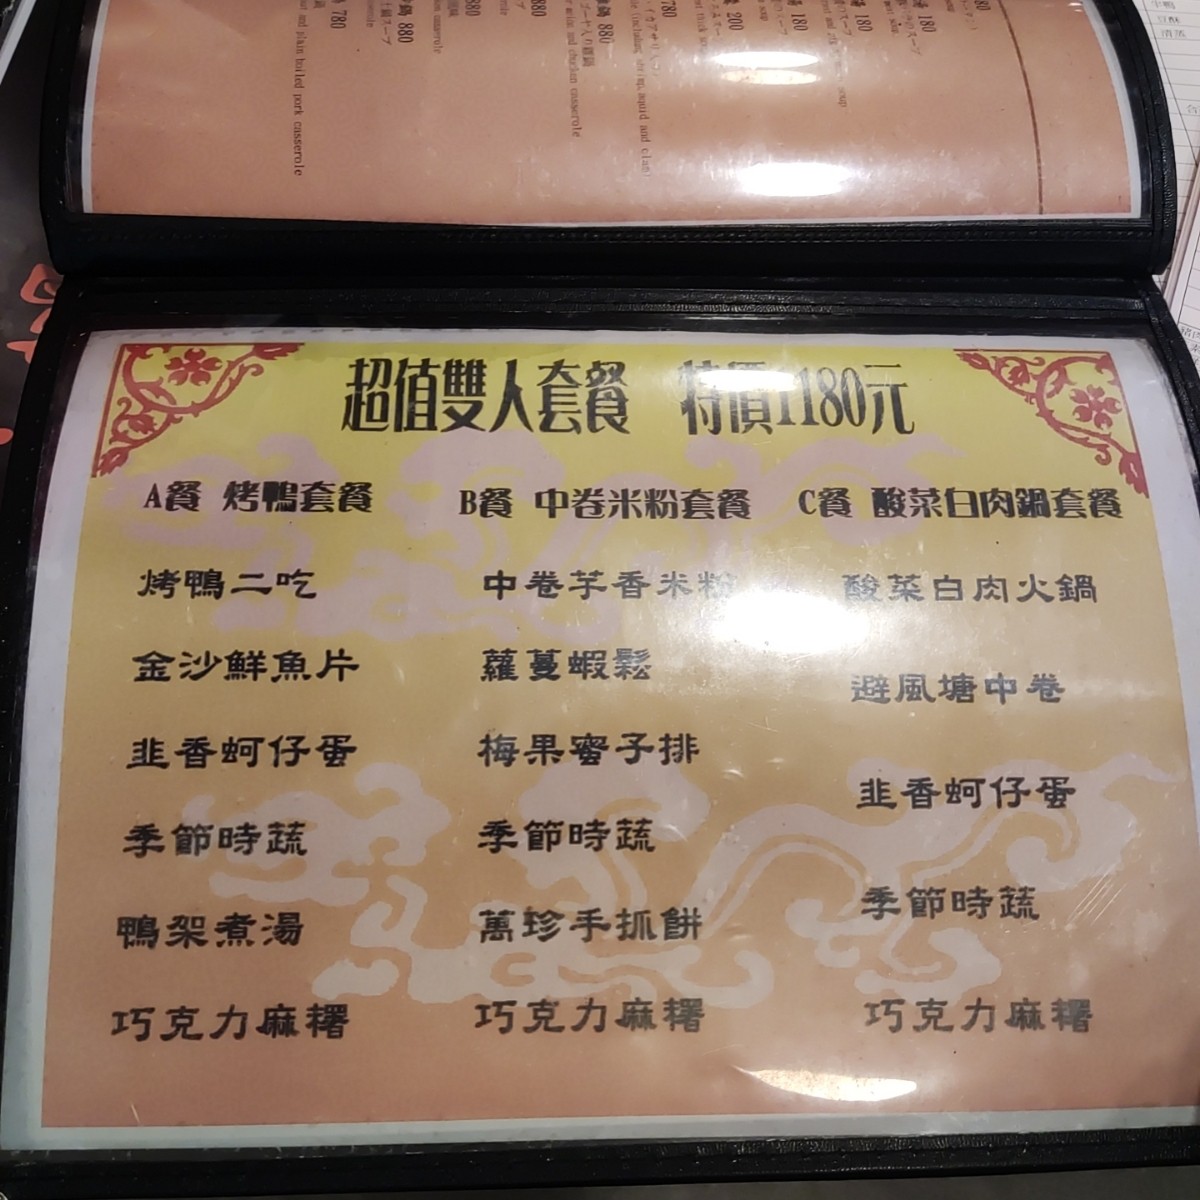 湯 180
湯 180
湯 180
羹 200
780
鍋 880
880
880
鍋 880
鍋 780
and chicken casserole
and plain boiled pork casserole
超值雙人套餐 特價1180元
A餐 烤鴨套餐
烤鴨二吃
金沙鮮魚片
韭香蚵仔蛋
季節時蔬
鴨架煮湯
巧克力麻糬
B餐 中卷米粉套餐
中卷芋香米粉
蘿蔓蝦鬆
梅果蜜子排
季節時蔬
萬珍手抓餅
巧克力麻糬
C餐 酸菜白肉鍋套餐
酸菜白肉火鍋
避風塘中卷
韭香蚵仔蛋
季節時蔬
巧克力麻糬